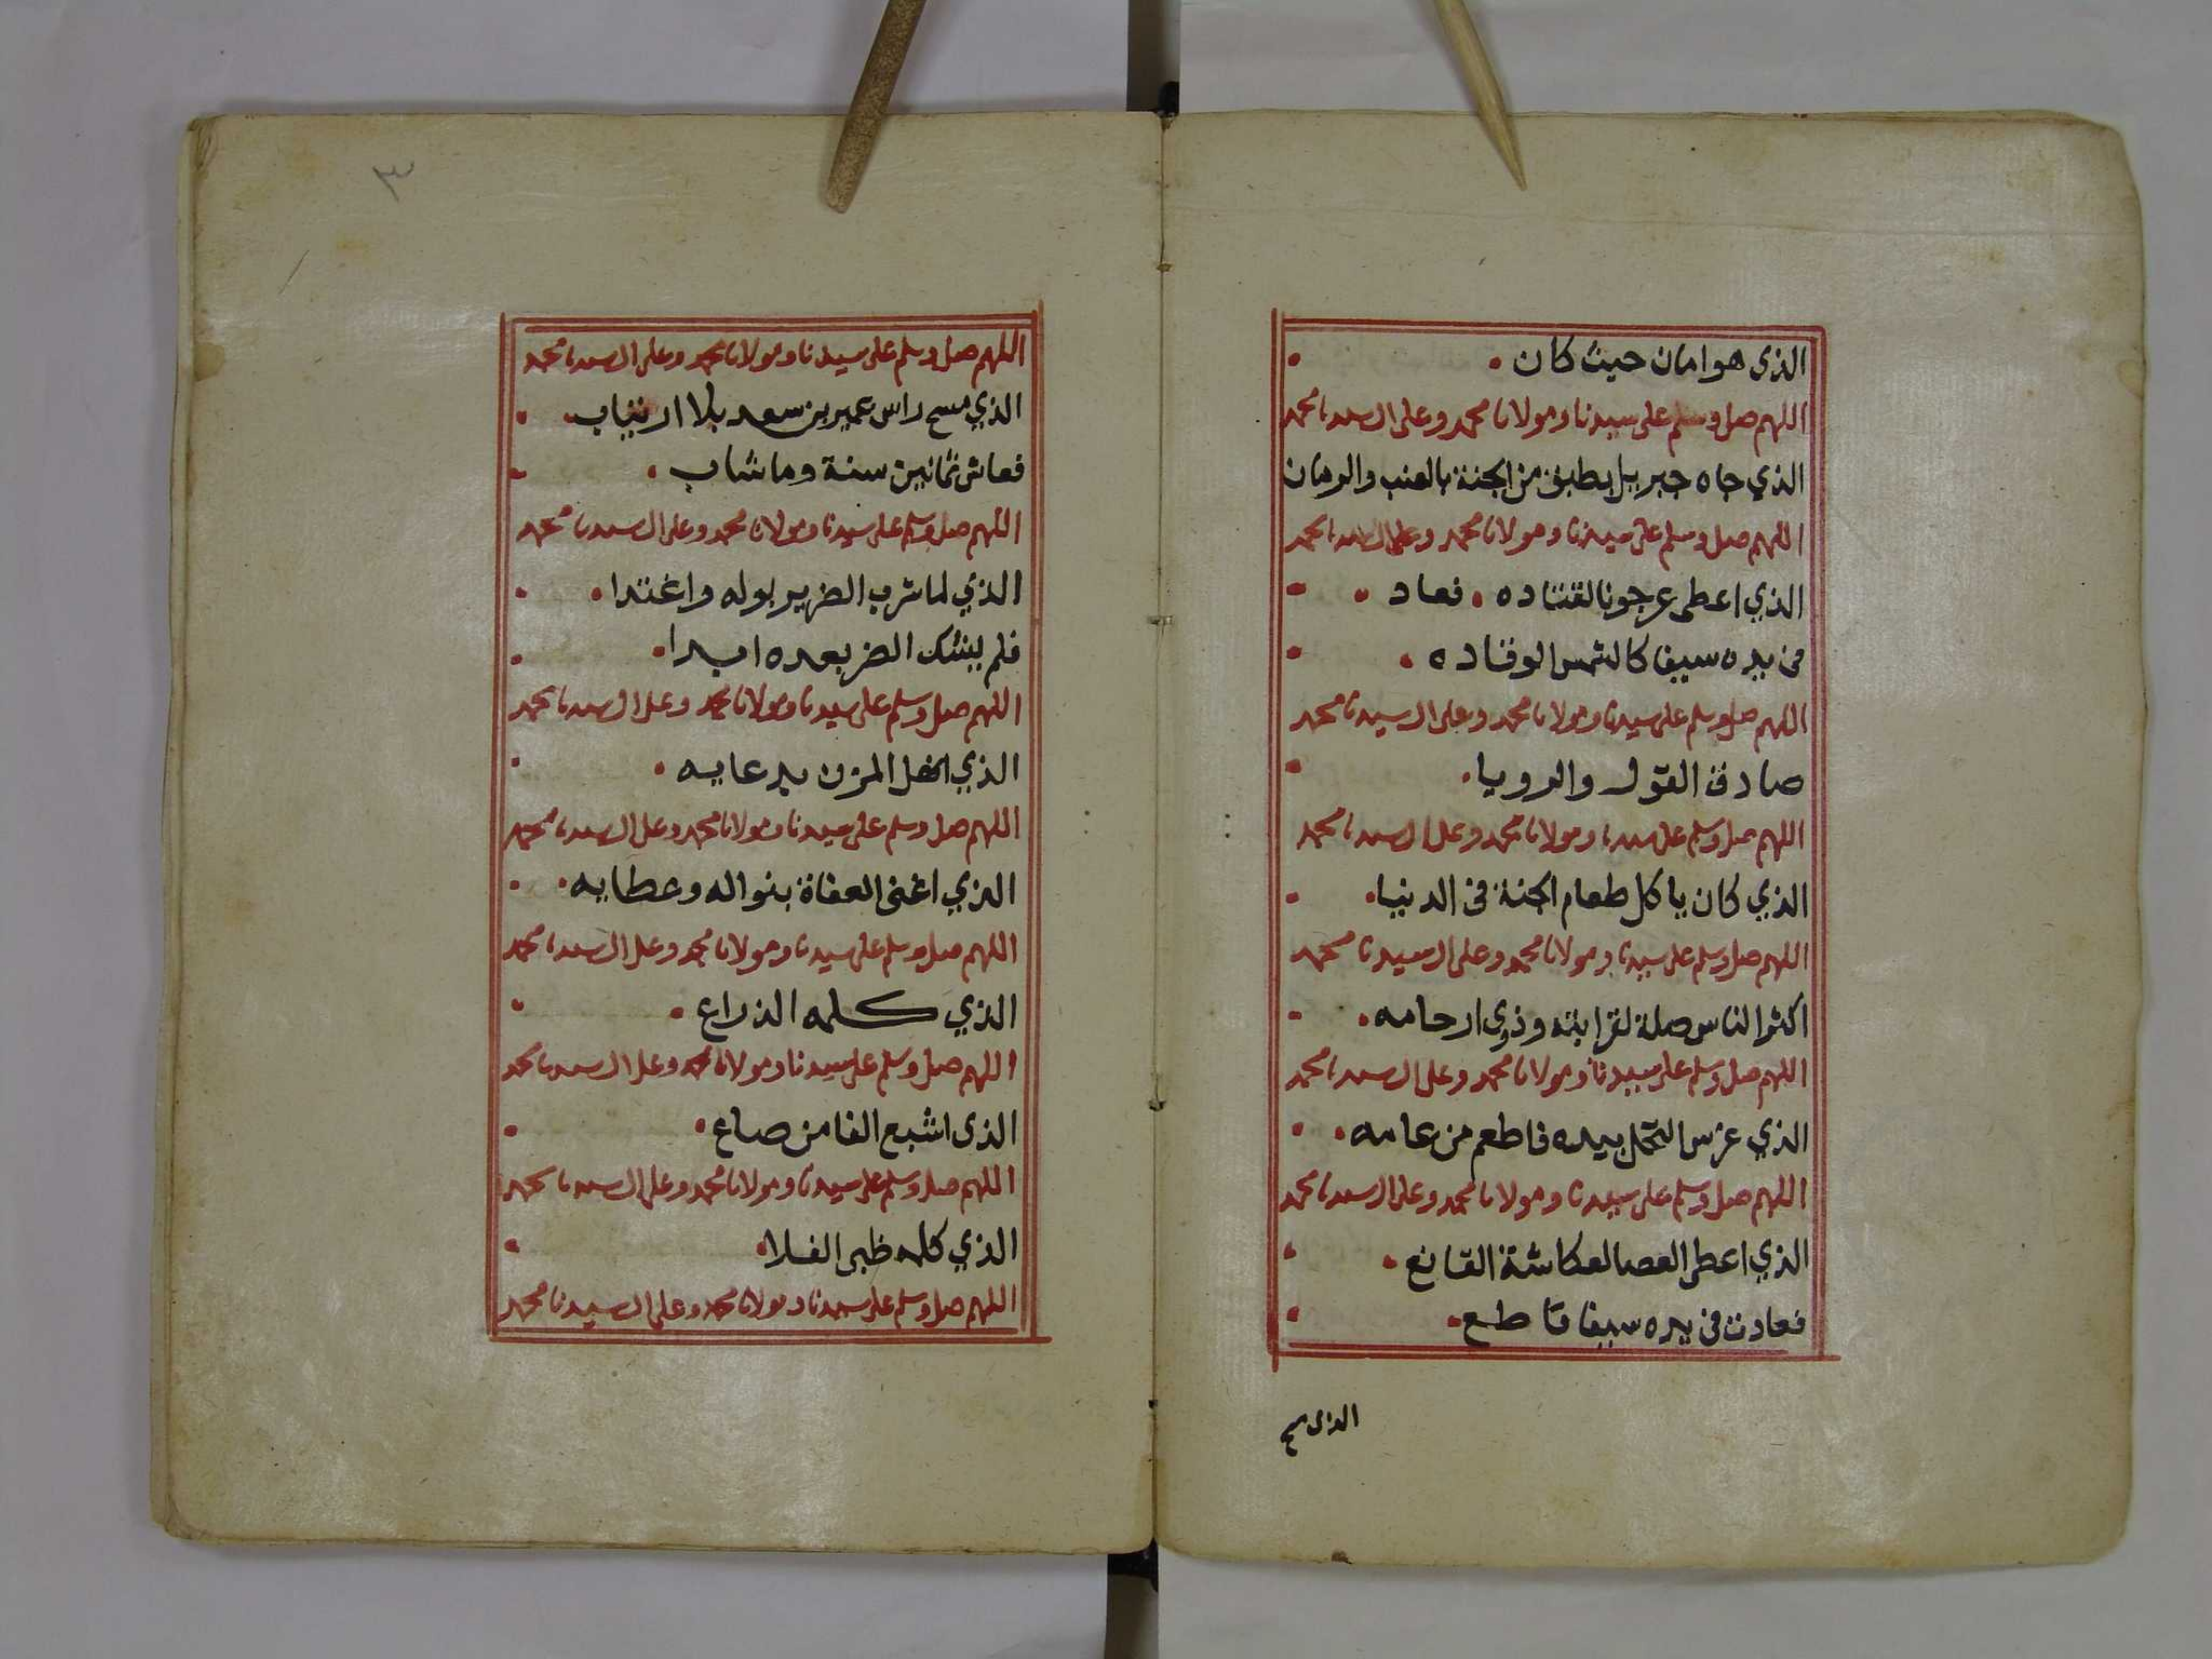 الذي هو امان حيث كان
اللهم صل وسلم على سيدنا ومولانا محمد وعلى ال سيدنا محمد
الذي جاه جبريل بطبق من الجنة بالعنب والرمان
اللهم صل وسلم على سيدنا ومولانا محمد وعلى ال سيدنا محمد
الذي اعطى عرجونا لقتاده . فعاد
في يده سيفا كالشمس الوقاده
اللهم صل وسلم على سيدنا ومولانا محمد وعلى ال سيدنا محمد
صادق القول والرويا
اللهم صل وسلم على سيدنا ومولانا محمد وعلى ال سيدنا محمد
الذي كان ياكل طعام الجنة في الدنيا
اللهم صل وسلم على سيدنا ومولانا محمد وعلى ال سيدنا محمد
اكثر الناس صلة لقرابته وذوي ارحامه
اللهم صل وسلم على سيدنا ومولانا محمد وعلى ال سيدنا محمد
الذي غرس النخل بيده فاطعم من عامه
اللهم صل وسلم على سيدنا ومولانا محمد وعلى ال سيدنا محمد
الذي اعطى العصا لعكاشة القانع
فعادت في يده سيفا قاطع
الذي مسح
٣
اللهم صل وسلم على سيدنا ومولانا محمد وعلى ال سيدنا محمد
الذي مسح راس عمير بن سعد بلا ارتياب
فعاش ثمانين سنة وما شاب
اللهم صل وسلم على سيدنا ومولانا محمد وعلى ال سيدنا محمد
الذي لما شرب الضرير بوله واغتدا
فلم يشك الضر بعده ابدا
اللهم صل وسلم على سيدنا ومولانا محمد وعلى ال سيدنا محمد
الذي المزن بدعايه
اللهم صل وسلم على سيدنا ومولانا محمد وعلى ال سيدنا محمد
الذي اغنى العفاة بنواله وعطايه
اللهم صل وسلم على سيدنا ومولانا محمد وعلى ال سيدنا محمد
الذي كلمه الذراع
اللهم صل وسلم على سيدنا ومولانا محمد وعلى ال سيدنا محمد
الذي اشبع الفا من صاع
اللهم صل وسلم على سيدنا ومولانا محمد وعلى ال سيدنا محمد
الذي كلمه ظبي الفلا
اللهم صل وسلم على سيدنا ومولانا محمد وعلى ال سيدنا محمد